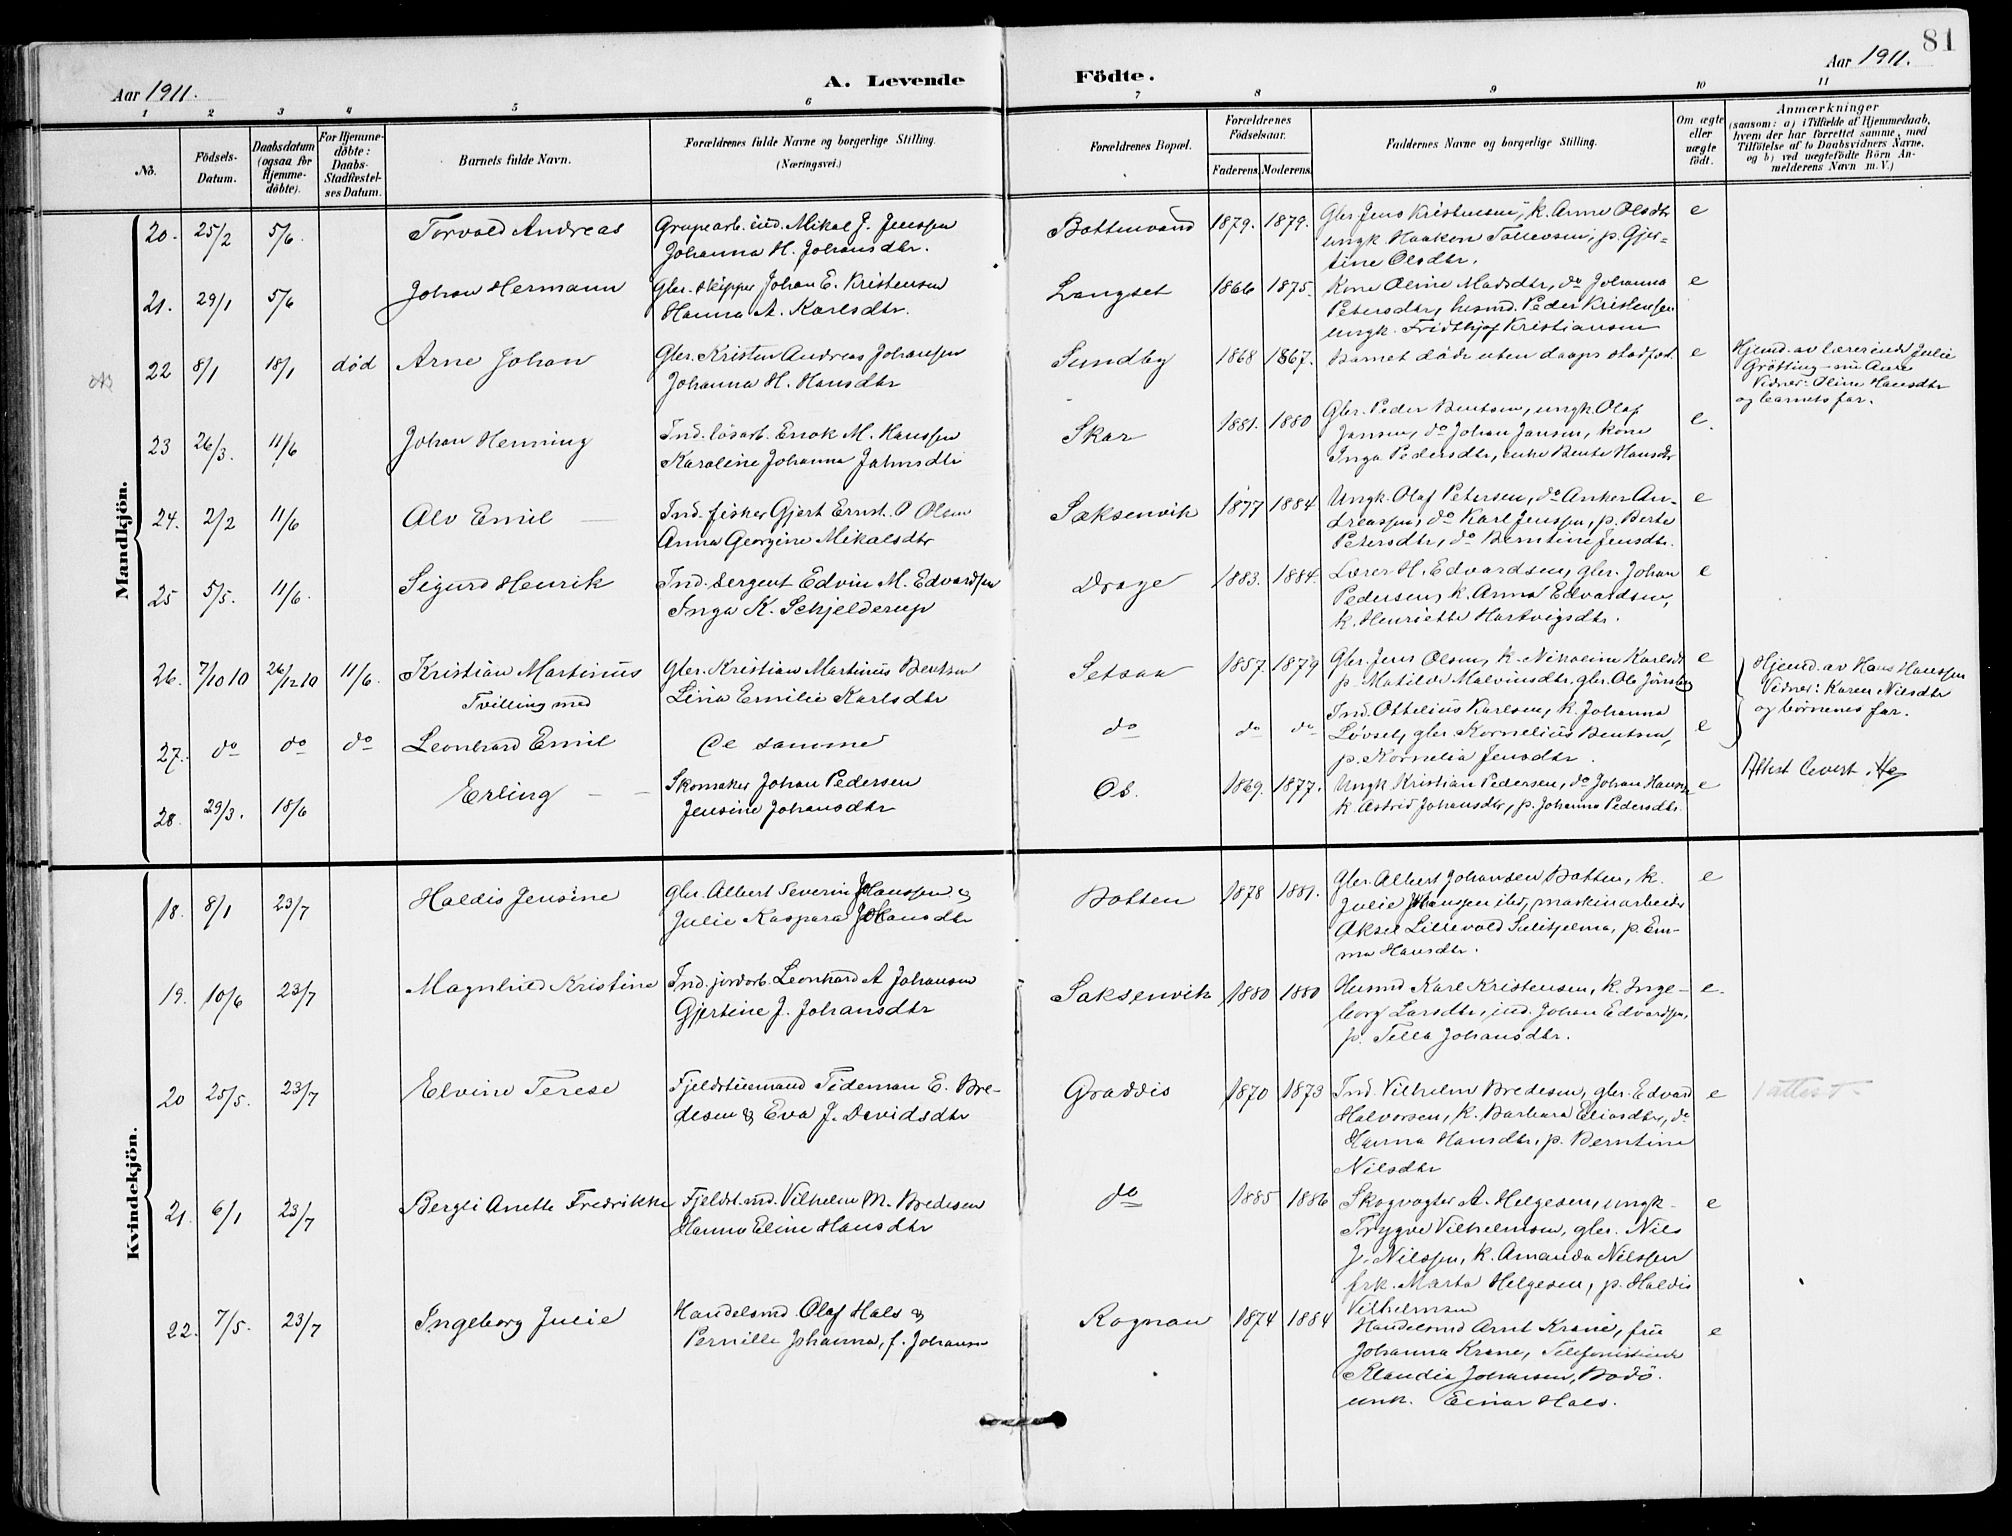 81
Aar 1911.
A. Levende Födte.
Aar 1911.
1 2 3 4 5 6 7 8 9 10 11
No.
Födsels-Datum.
Daabsdatum (ogsaa for Hjemme-döbte).
For Hjemme-döbte: Daabs-Stadfæstel-ses Datum.
Barnets fulde Navn.
Forældrenes fulde Navne og borgerlige Stilling. (Næringsvei.)
Forældrenes Bopæl.
Forældrenes Födselsaar.
Faderens. Moderens.
Faddernes Navne og borgerlige Stilling.
Om ægte eller uægte födt.
Anmærkninger
(saasom: a) i Tilfælde af Hjemmedaab, hvem der har forrettet samme, med Tilföielse af to Daabsvidners Navne, og b) ved uægtefödte Börn An-melderens Navn m. V.)
Mandkjön.
20. 25/2 5/6. Torvald Andreas
Grupearb. ind. Mikal J. Jenssen
Johanna H. Johansdtr.
Bottenvand 1879. 1879.
Gbr. Jens Kristensen, k. Anne Olsdtr
ungk. Haakon Tollevsen, p. Gjer-
tine Olsdtr.
e
21. 29/1 5/6 Johan Hermann
Gbr. skipper Johan E. Kristensen
Hanna A. Karlsdtr.
Langset 1866 1875.
Kone Oline Madsdtr, do Johanna
Petersdtr, husmd. Peder Kristensen
ungk. Fridthjof Kristiansen
e
22 8/1 18/1 död Arne Johan
Gbr. Kristen Andreas Johansen
Johanna H. Hansdtr
Sundby 1868 1867.
Barnet döde uten daaps stadfæst.
e
Hjemd. av lærerinde Julie
Grötting
Vidner: Oline Hansdtr
og barnets far.
23 26/3. 11/6 Johan Henning
Ind. lösarb. Enok M. Hanssen
Karoline Johanna Jahnsdtr
Skar 1881. 1880
Gbr. Peder Bentsen, ungk. Olaf
Jansen, do Johan Jansen, kone
Inga Pedersdtr, enke Bente Hansdtr
e.
24. 2/2 11/6 Alv Emil
Ind. fisker Gjert Ernst O Olsen
Anna Georgine Mikalsdtr
Saksenvik 1877 1884
Ungk. Olaf Petersen, do Anker An-
dreassen, do Karl Jenssen, p. Berte
Petersdtr, do Berntine Jensdtr.
e
25 5/5. 11/6. Sigurd Henrik
Ind. sergent Edvin M. Edvardsen
Inga K. Schjelderup
Drage 1883. 1884.
Lærer H. Edvardsen, gbr. Johan
Pedersen, k. Anna Edvardsen,
k. Henriette Hartvigsdtr.
e
26. 7/10 10 26/12 10 11/6. Kristian Martinus
Tvilling med
Gbr. Kristian Martinus Bentsen
Lina Emilie Karlsdtr
Setsaa 1857. 1879
Gbr. Jens Olsen, k. Nikoline Karlsdt
p. Matilde Malvinsdtr, gbr. Ole Jönsberg
e
Hjemd. av Hans Hanssen
Vidner: Karen Nilsdtr
og börnenes far.
27. do do do Leonhard Emil
De samme
do do do
Ind. Ottelius Karlsen, k. Johanna
Lövset, gbr. Kornelius Bentsen,
p. Kornelia Jensdtr.
e
28. 29/3. 18/6 Erling
Skomaker Johan Pedersen
Jensine Johansdtr
Os. 1869. 1877.
Ungk Kristian Pedersen, do Johan Hansen
k. Astrid Johansdtr, p. Johanna Pedersdtr.
e
Attest levert.
Kvindekjön.
18. 8/1 23/7 Haldis Jensine
Gbr. Albert Severin Johanssen &
Julie Kaspara Johansdtr
Botten 1878 1881.
Gbr. Albert Johansen Botten, k.
Julie Johanssen ibd, maskinarbeider
Aksel Lillevold Sulitjelma, p. Em-
ma Hansdtr.
e
19. 10/6 23/7 Magnhild Kristine
Ind. jordarb. Leonhard A Johansen
Gjertine J. Johansdtr
Saksenvik 1880 1880
Husmd Karl Kristensen, k. Inge-
borg Larsdtr, ind. Johan Edvardsen,
p. Tella Johansdtr.
e.
20 25/5. 23/7 Elvine Terese
Fjeldstuemand Tideman E. Bre-
desen & Eva J. Davidsdtr
Graddis 1870 1873
Ind. Vilhelm Bredesen, gbr. Edvard
Halvorsen, k. Barbara Eliasdtr, do
Hanna Hansdtr, p. Berntine
Nilsdtr
e
attest
21. 6/1 23/7 Bergli Anette Fredrikke
Fjeldst.md. Vilhelm M. Bredesen
Hanna Eline Hansdtr
do 1885 1886
Skogvogter A. Helgesen, ungk.
Trygve Vilhelmsen, gbr. Nils
J. Nilssen, k. Amanda Nilssen
frk. Marta Helgesen, p. Haldis
Vilhelmsen
e
22. 7/5. 23/7 Ingeborg Julie
Handelsmd. Olaf Hals &
Pernille Johanna, f. Johansen
Rognan 1874 1884
Handelsmd Arnt Krane, fru
Johanna Krane, Telefonistinde
Klaudia Johansen, Bodö.
unk. Einar Hals.
e